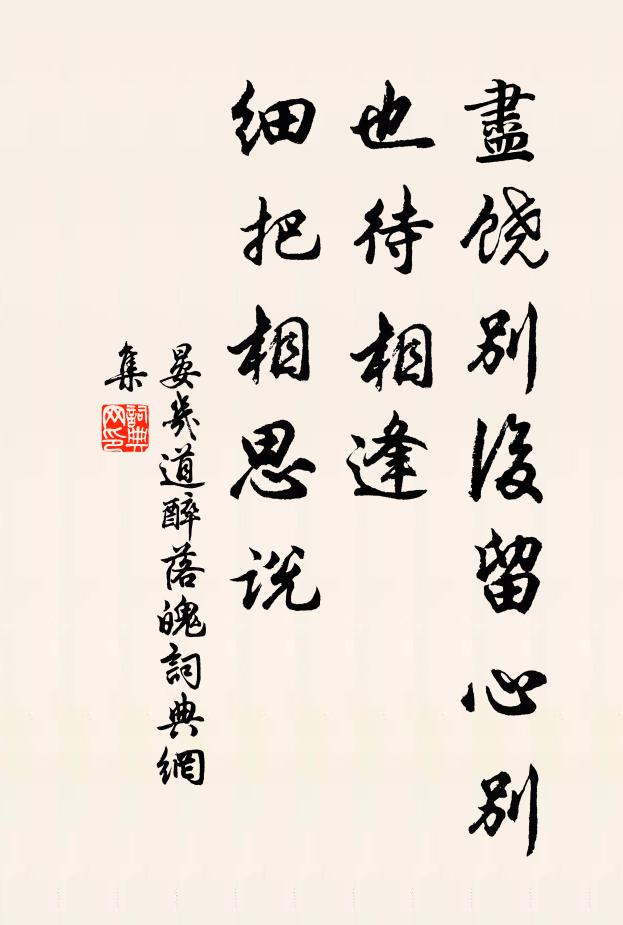 盡饒別後留心別
也待相逢
細把相思説
晏幾道醉落魄詞典網
集
詞典
网印